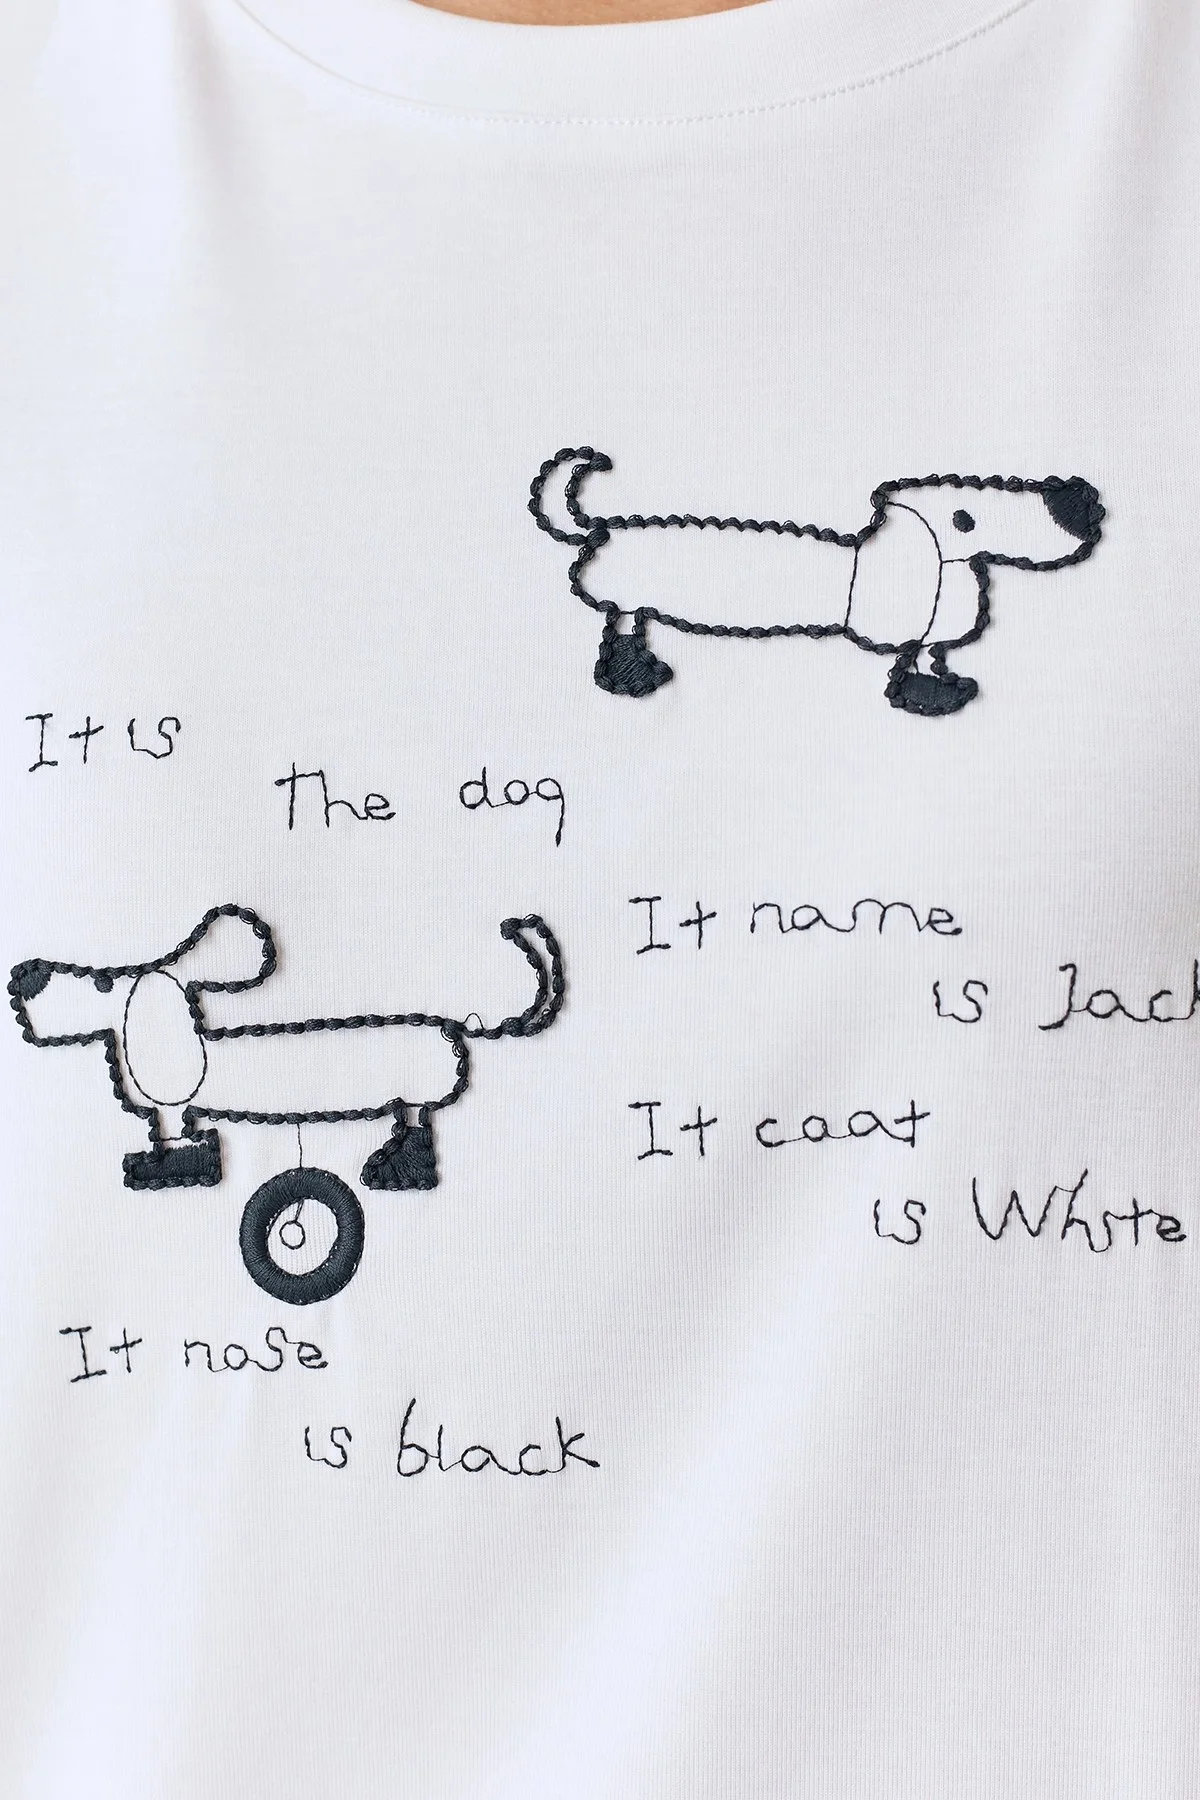 It is
the dog
It name
is Jack
It caat
is White
It nose
is black